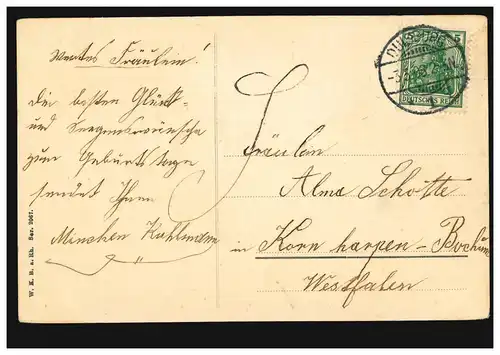 Wertes Fräulein!
Die besten Glück-
und Segenswünsche
zum Geburtstage
sendet Ihnen
Minchen Kuhlmann
W. K. B. a. Rh. Ser. 2067.
5
DEUTSCHES REICH
Fräulein
Alma Schotte
in Korn harpen-Bochum
Westfalen